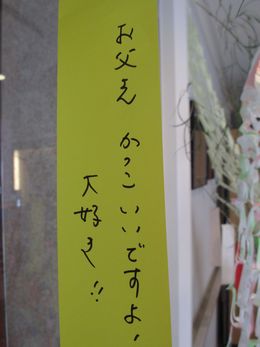 お父さん かっこいいですよ、
大好き!!